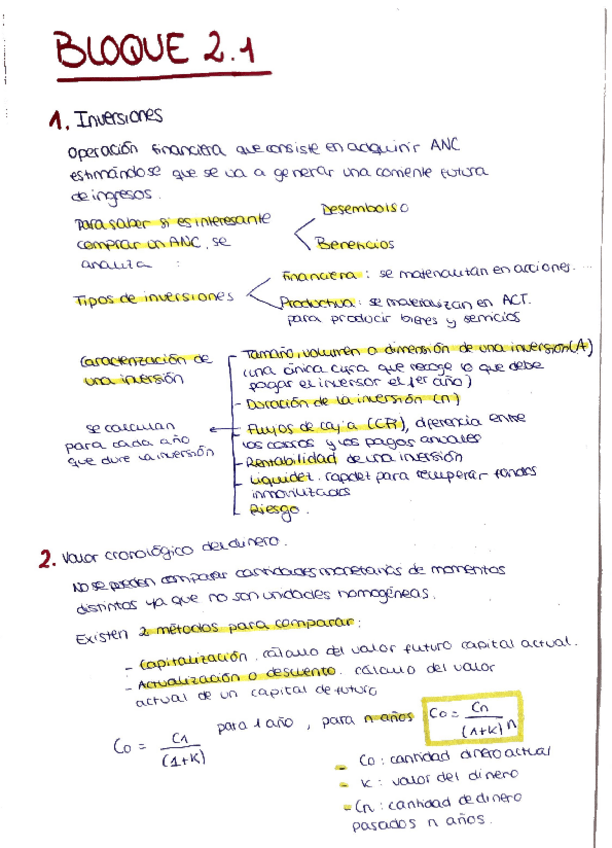 BLOQUE 2.1
1. Inversiones
Operación financiera que consiste en adquirir ANC
estimándose que se va a generar una corriente futura
de ingresos.
Para saber si es interesante
comprar un ANC, se
analiza :
Desembolso
Beneficios
Tipos de inversiones
Financiera : se materializan en acciones...
Productiva : se materializan en ACT.
para producir bienes y servicios
Caracterización de
una inversión
- Tamaño, volumen o dimensión de una inversión (A)
(una única cifra que recoge lo que debe
pagar el inversor el 1er año)
- Duración de la inversión (n)
- Flujos de caja (CFi), diferencia entre
los cobros y los pagos anuales
- Rentabilidad de una inversión
- Liquidez. rapidez para recuperar fondos
inmovilizados
- Riesgo.
se calculan
para cada año
que dure la inversión
2. Valor cronológico del dinero.
No se pueden comparar cantidades monetarias de momentos
distintos ya que no son unidades homogéneas.
Existen 2 métodos para comparar:
- Capitalización. cálculo del valor futuro capital actual.
- Actualización o descuento. cálculo del valor
actual de un capital de futuro
Co = C1 / (1+K) para 1 año, para n años Co = Cn / (1+K)n
- Co : cantidad dinero actual
- K : valor del dinero
- Cn : cantidad de dinero
pasados n años.